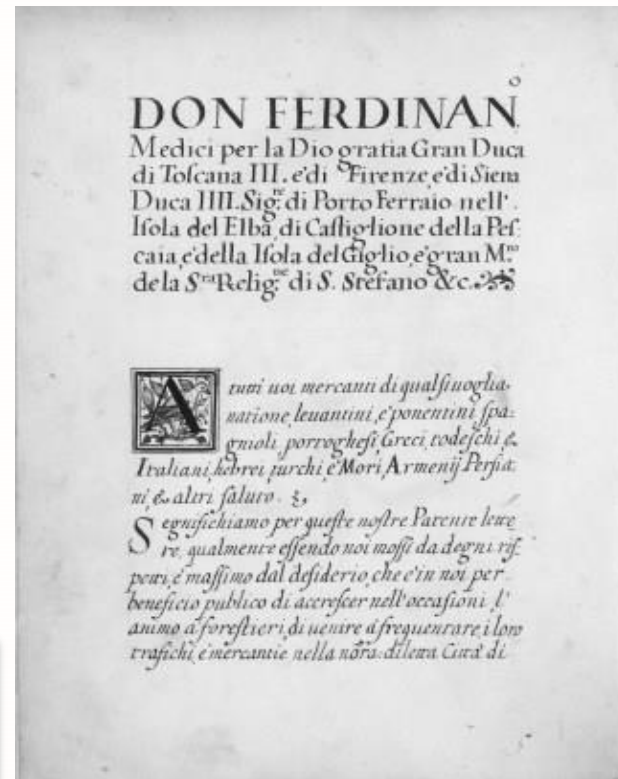 DON FERDINAN.º
Medici per la Dio gratia Gran Duca
di Toſcana III. e di Firenze, e di Siena
Duca IIII. Sig.re di Porto Ferraio nell'
Iſola del Elba, di Caſtiglione della Peſ:
caia, e della Iſola del Giglio, e gran M.ro
de la S.ra Relig.ne di S. Stefano &c.
A tutti uoi mercanti di qualſiuoglia
natione, leuantini, e ponentini, ſpa:
gnioli, portogheſi, Greci, todeſchi, &
Italiani, hebrei, turchi, e Mori, Armenij, Perſia:
ni, & altri ſaluto.
Segnifichiamo per queſte noſtre Patente lette
re, qualmente eſſendo noi moſſi da degni riſ:
petti, e maſſimo dal deſiderio, che è in noi per
beneficio publico di accreſcer nell'occaſioni, l'
animo a foreſtieri, di uenire a frequentare, i loro
trafichi, e mercantie nella nõra diletta Città di